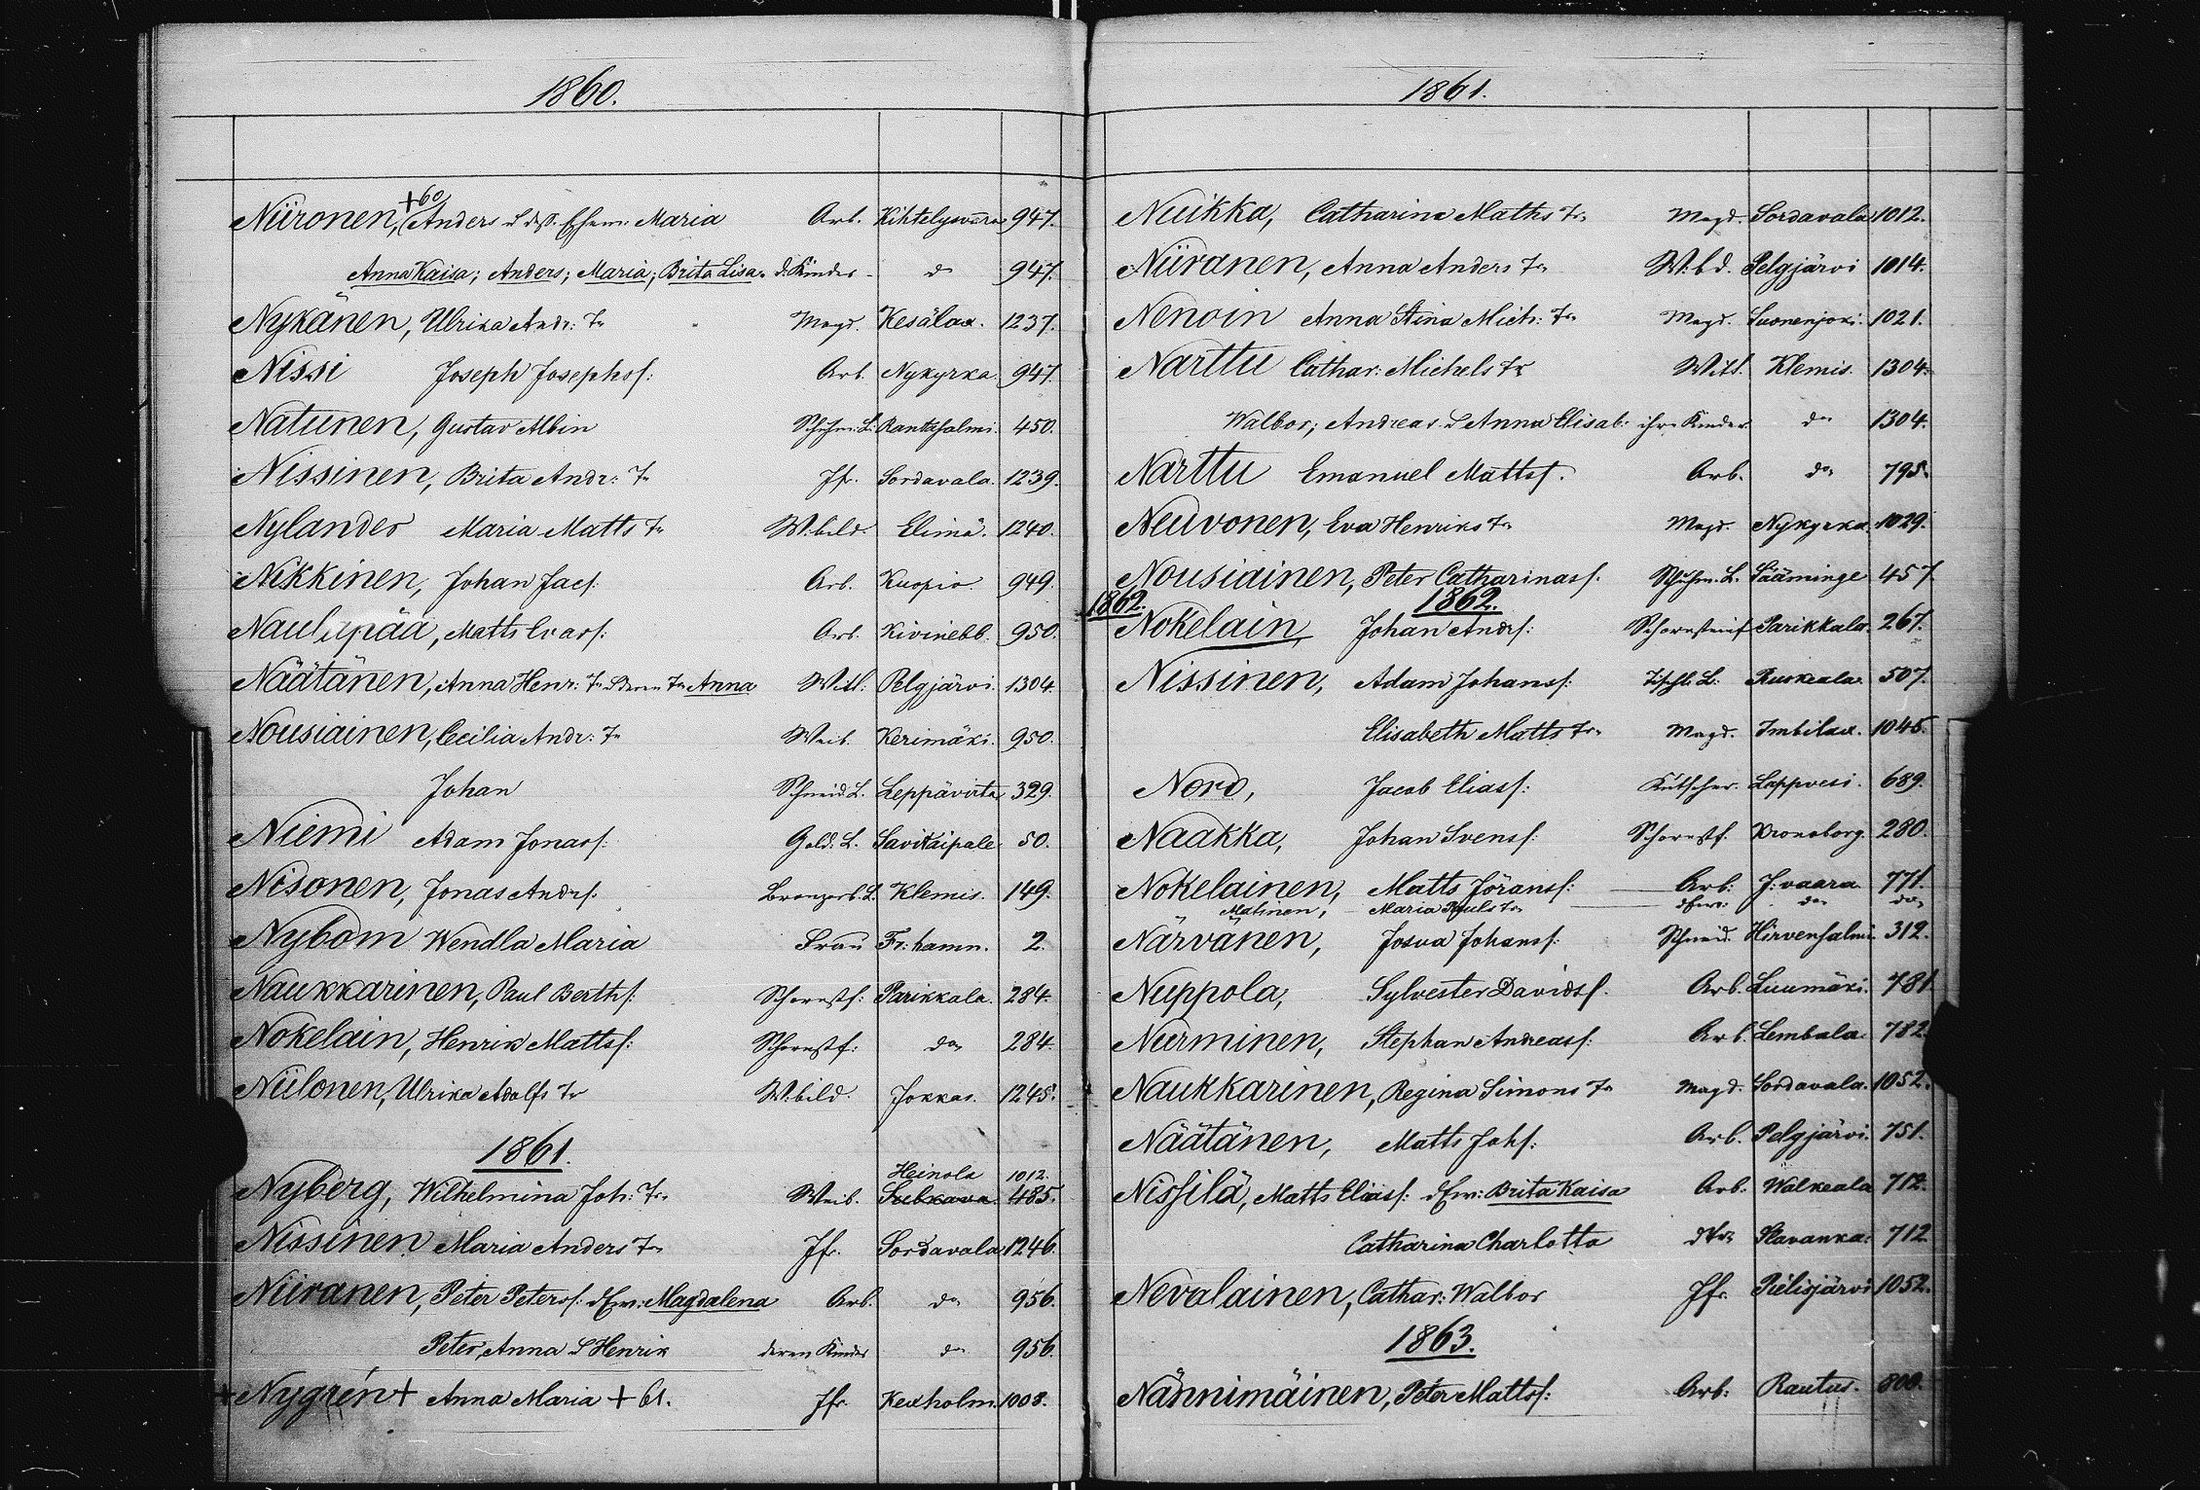 1860.
+60
Niironen, Anders Maria Arb. Kihtelysvara 947.
Anna Kaisa; Anders; Maria; Brita Lisa d. Kinder do 947.
Nykänen, Ulrika Andr: Tr Magd. Kesälax. 1237.
Nissi Joseph Josephsf: Arb. Nykyrka 947.
Natunen, Gustav Albin Schuhm. L. Rantasalmi. 450.
Nissinen, Brita Andr: Tr Jfr. Sordavala. 1239.
Nylander Maria Matts Tr W:bild. Elimä. 1240.
Nikkinen, Johan Jacf: Arb. Kuopio 949.
Naulapää, Matts Evasf: Arb. Kivinebb. 950.
Näätänen, Anna Henr: Tr & deren Tr Anna Witt: Pelgjärvi 1304.
Nousiainen, Cecilia Andr: Tr Weib. Kerimäki. 950.
Johan Schneid L. Leppävirta 329.
Niemi Adam Jonasf: Gold. L. Savitaipale 50.
Nisonen, Jonas Andrf: Bronzarb. L. Klemis. 149.
Nybom Wendla Maria Frau Fr:hamn. 2.
Naukkarinen, Paul Berthf: Schornstf: Parikkala. 284.
Nokelain, Henrik Mattsf: Schornstf: do 284.
Niilonen, Ulrika Adolfs Tr W:bild. Jokkas. 1245.
1861.
Heinola 1012.
Nyberg, Wilhelmina Joh: Tr Weib. 485.
Nissinen Maria Anders Tr Jfr. Sordavala 1246.
Niiranen, Peter Petersf: dEw: Magdalena Arb. do 956.
Peter, Anna & Henrik deren Kinder do 956.
+ Nygrén + Anna Maria + 61. Jfr. Kexholm. 1008.
1861.
Nuikka, Catharina Matts Tr Magd. Sordavala 1012.
Niiranen, Anna Anders Tr W:bd. Pelgjärvi 1014.
Nenoin Anna Stina Mich: Tr Magd. Suonenjoki. 1021.
Narttu Cathar: Michels Tr Witt. Klemis. 1304.
Walbor; Andreas & Anna Elisab: ihre Kinder do 1304.
Narttu Emanuel Mattsf. Arb. do 795.
Neuvonen, Eva Henriks Tr Magd. Nykyrka. 1029.
Nousiainen, Peter Catharinasf. Schuhm. L. Sääminge 457
1862. 1862.
Nokelain, Johan Andrf: Schornsteinf Parikkala. 267.
Nissinen, Adam Johansf: Tischl. L. Ruskeala. 507.
Elisabeth Matts Tr Magd. Imbilax. 1045.
Nord, Jacob Eliasf: Kutscher. Lappvesi. 689.
Naakka, Johan Svensf: Schornstf. Kronoborg. 280.
Nokelainen, Matts Göransf: Arb: J:vaara 771.
Matinen, Maria Pauls Tr dEw: do do
Närvänen, Josua Johansf: Schneid. Hirvensalmi 312.
Nuppola, Sylvester Davidsf. Arb. Luumäki. 781
Nurminen, Stephan Andreasf: Arb. Lembala. 782
Naukkarinen, Regina Simons Tr Magd. Sordavala. 1052.
Näätänen, Matts Johf: Arb. Pelgjärvi. 751.
Nissilä, Matts Eliasf: dEw: Brita Kaisa Arb. Walkeala 712.
Catharina Charlotta dTr Slavanka. 712
Nevalainen, Cathar: Walbor Jfr. Pielisjärvi 1052.
1863.
Nännimäinen, Peter Mattsf: Arb: Rautus. 800.